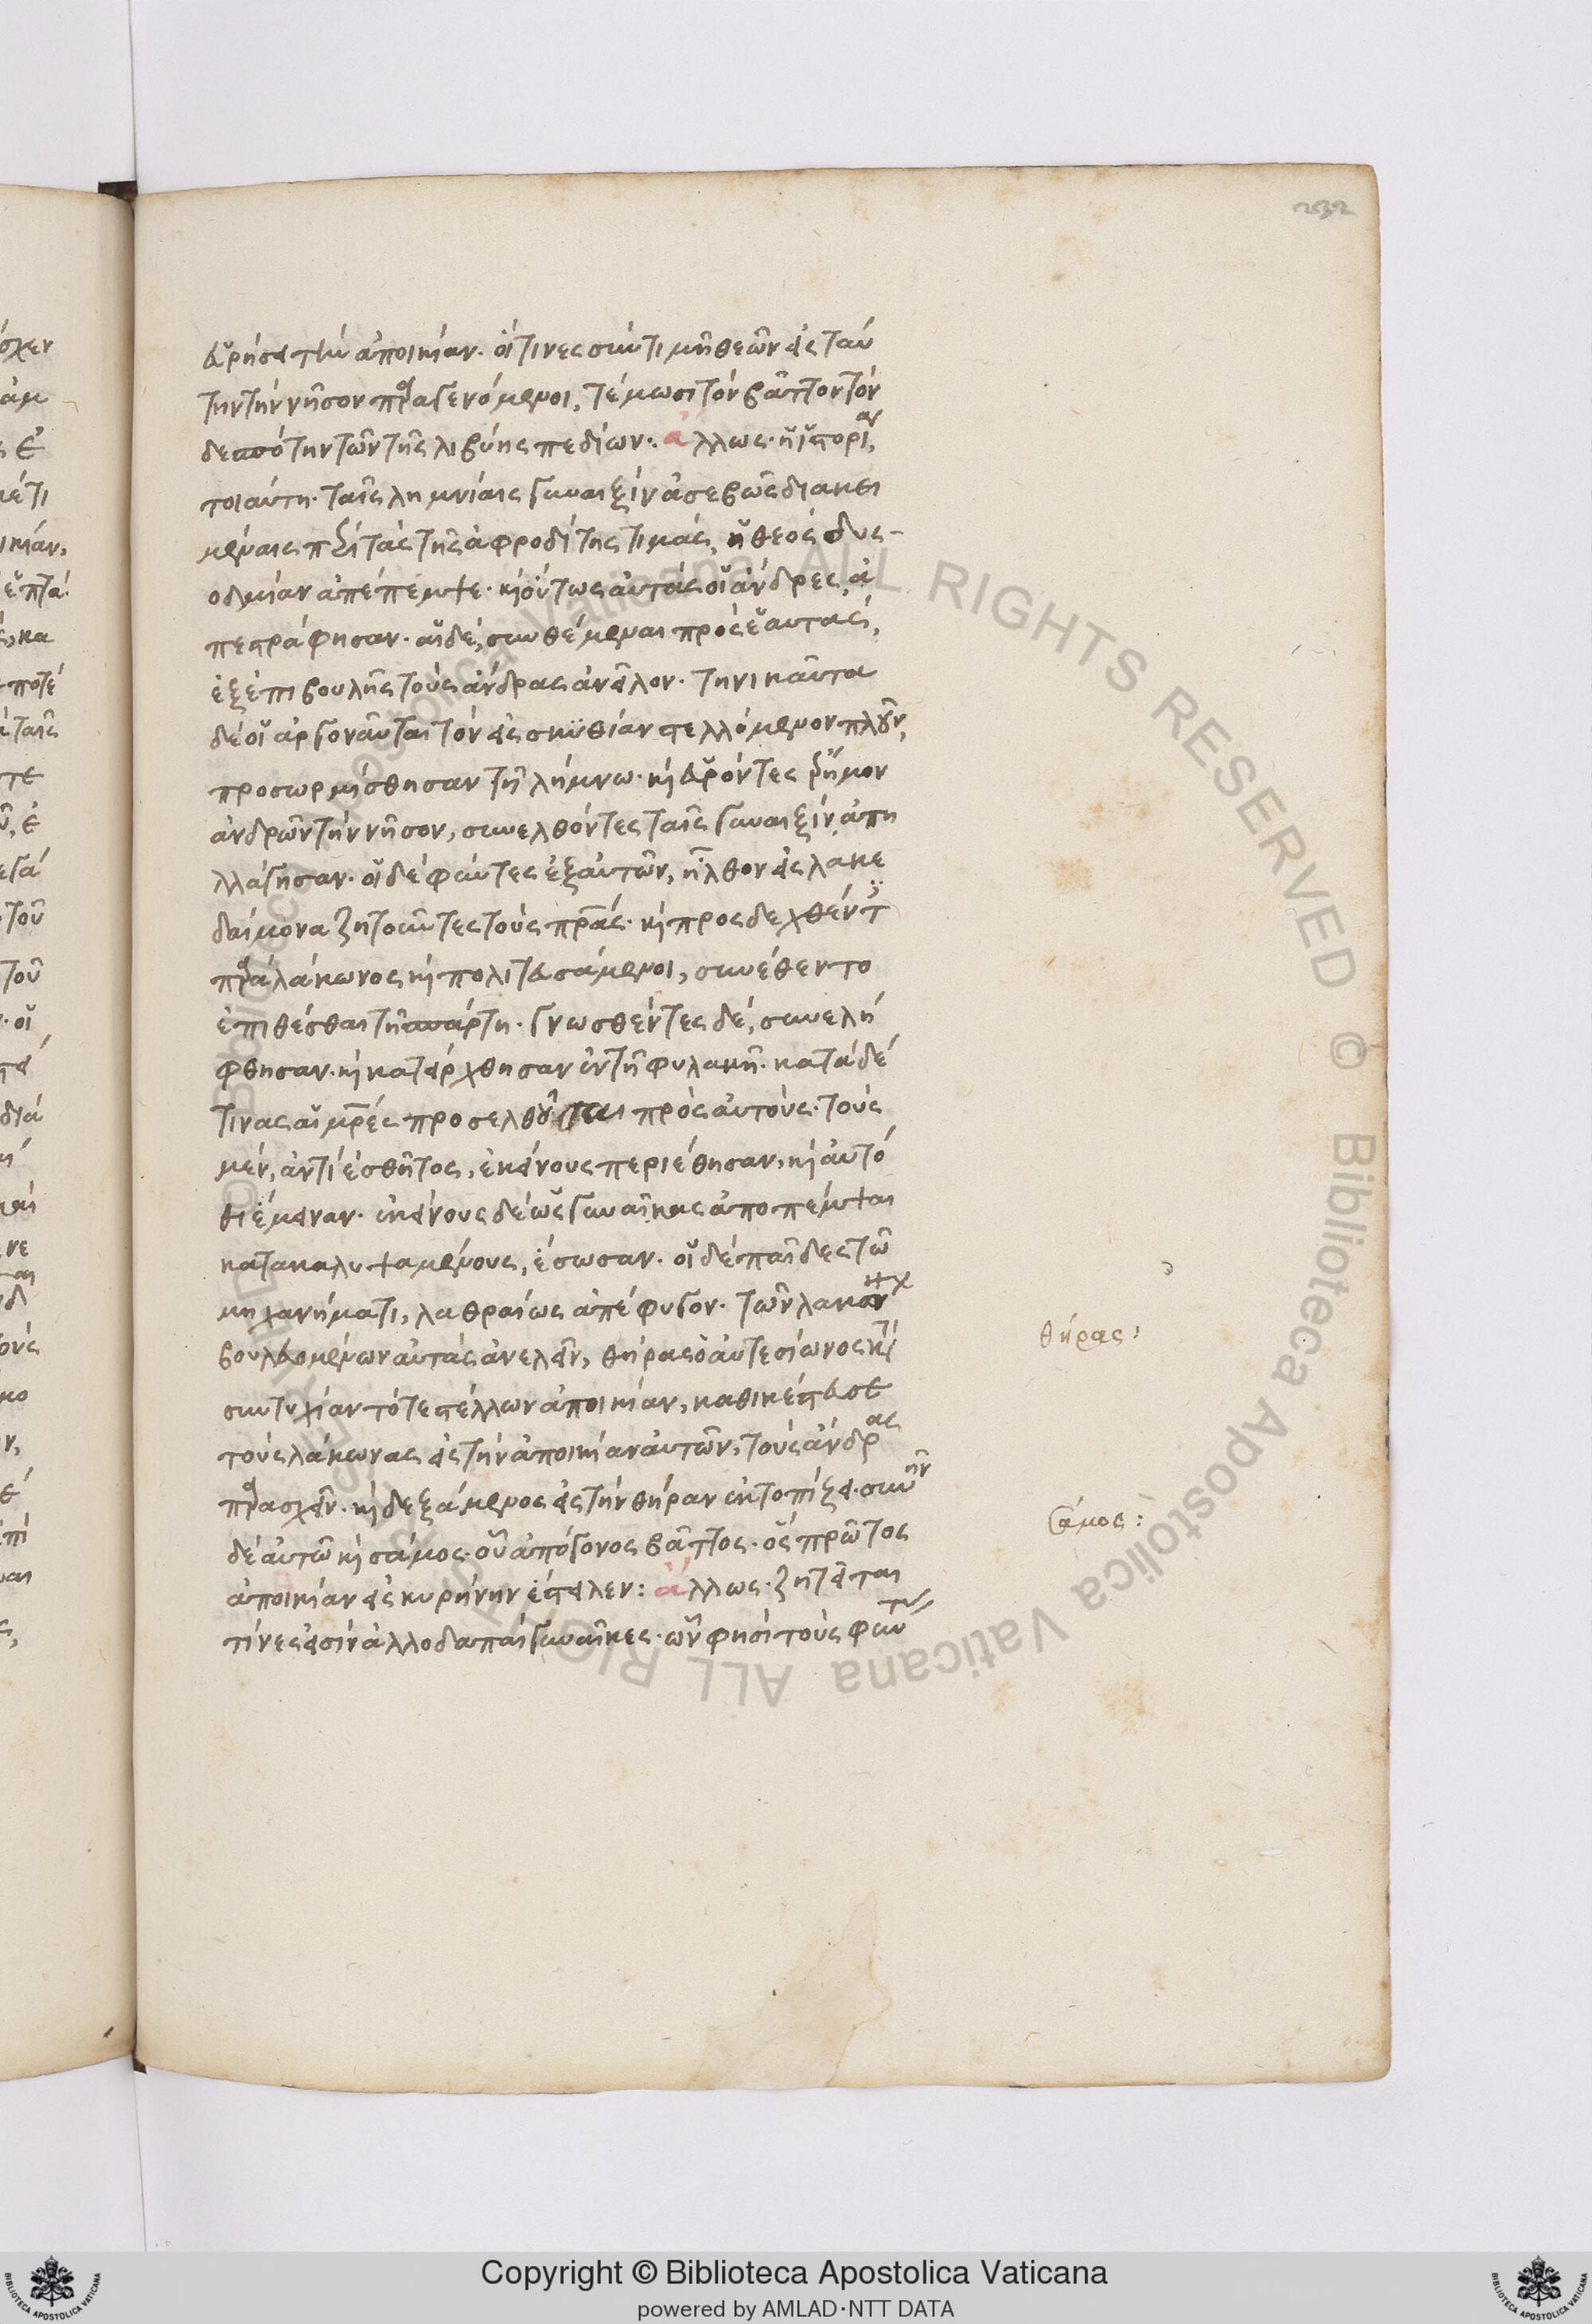 232
εὑρήσει τὴν ἀποικίαν. οἵτινες σὺν τιμῇ θεῶν εἰς ταύ
την τὴν νῆσον παραγενόμενοι, τέμωσι τὸν βάττον τὸν
δεσπότην τῶν τῆς λιβύης πεδίων: ἄλλως. ἡ ἱστορία,
τοιαύτη. ταῖς λημνίαις γυναιξὶν ἀσεβῶς διακει
μέναις περὶ τὰς τῆς ἀφροδίτης τιμάς, ἡ θεὸς δυς-
οδμίαν ἀπέπεμψε. καὶ οὕτως αὐτὰς οἱ ἄνδρες, ἀ
πεστράφησαν. αἱ δὲ, συνθέμεναι πρὸς ἑαυτάς,
ἐξ ἐπιβουλῆς τοὺς ἄνδρας ἀνεῖλον. τηνικαῦτα
δὲ οἱ ἀργοναῦται τὸν εἰς σκυθίαν στελλόμενον πλοῦν,
προσωρμίσθησαν τῇ λήμνω. καὶ εὑρόντες ἔρημον
ἀνδρῶν τὴν νῆσον, συνελθόντες ταῖς γυναιξὶν, ἀπη
λλάγησαν. οἱ δὲ φύντες ἐξ αὐτῶν, ἦλθον εἰς λακε
δαίμονα ζητοῦντες τοὺς πατέρας. καὶ προσδεχθέντες
παρὰ λάκωνος καὶ πολιτευσάμενοι, συνέθεντο
ἐπιθέσθαι τῇ σπάρτη. γνωσθέντες δὲ, συνελή
φθησαν. καὶ κατείρχθησαν ἐν τῇ φυλακῇ. κατὰ δέ
τινας αἱ μητέρες προσελθοῦσαι πρὸς αὐτούς. τοὺς
μὲν, ἀντὶ ἐσθῆτος, ἐκείνους περιέθησαν, καὶ αὐτό
θι ἔμειναν. ἐκείνους δὲ ὡς γυναῖκας ἀποπέμψαι
κατακαλυψαμένους, ἔσωσαν. οἱ δὲ παῖδες τῶ
μηχανήματι, λαθραίως ἀπέφυγον. τῶν λακόνων
βουλευομένων αὐτὰς ἀνελεῖν, θήρας ὁ αὐτεσίωνος κατὰ
συντυχίαν τότε στέλλων ἀποικίαν, καθικέτευσε
τοὺς λάκωνας εἰς τὴν ἀποικίαν αὐτῶν, τοὺς ἄνδρας
παρασχεῖν. καὶ δεξάμενος εἰς τὴν θήραν ἐκτοπίζει. συνῆν
δὲ αὐτῶ καὶ σάμος. οὗ ἀπόγονος βάττος. ὃς πρῶτος
ἀποικίαν εἰς κυρήνην ἔστειλεν: ἄλλως. ζητεῖται
τίνες εἰσὶν ἀλλοδαπαὶ γυναῖκες. ὧν φησὶ τοὺς φύντας
θήρας:
Σάμος:
Copyright © Biblioteca Apostolica Vaticana
powered by AMLAD·NTT DATA